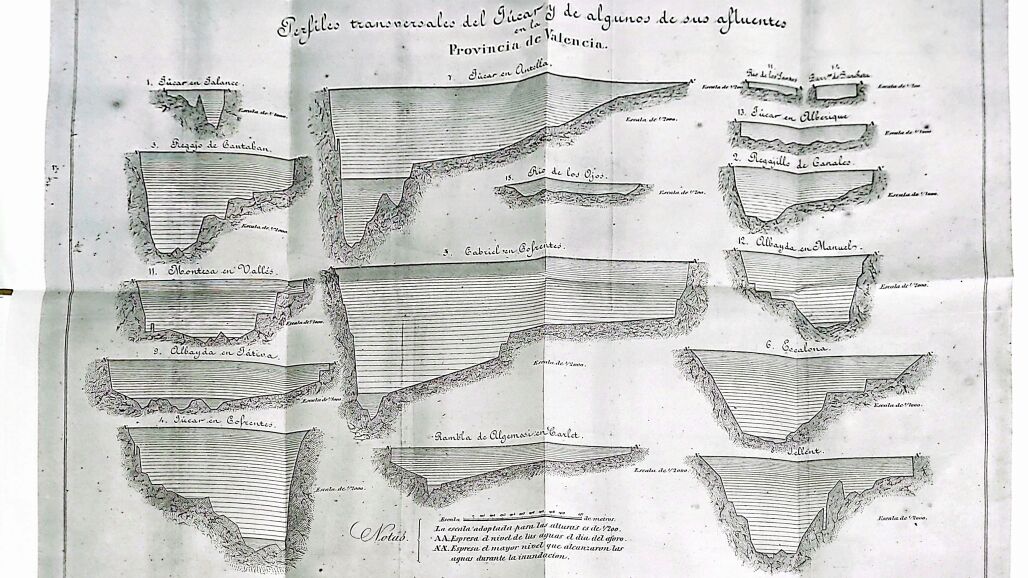 Perfiles transversales del Júcar y de algunos de sus afluentes
en la
Provincia de Valencia.
1. Júcar en Jalance.
Escala de 1/1000.
3. Regajo de Cantaban.
Escala de 1/1000.
11. Montesa en Vallés.
Escala de 1/1000.
9. Albayda en Játiva.
4. Júcar en Cofrentes.
Escala de 1/1000.
7. Júcar en Antella.
Escala de 1/1000.
15. Rio de los Ojos.
Escala de 1/200.
5. Cabriel en Cofrentes.
Escala de 1/2000.
Rambla de Algemesi en Carlet.
Escala de 1/2000.
Rio de los Santos
13. Júcar en Alberique
2. Regajillo de Canales.
Escala de 1/1000.
12. Albayda en Manuel.
Escala de 1/2000.
6. Escalona.
Escala de 1/1000.
8. Sellent.
Escala de 1/2000.
Notas.
Escala de metros.
La escala adoptada para las alturas es de 1/200.
AA. Espresa el nivel de las aguas el dia del aforo.
XX. Espresa el mayor nivel que alcanzaron las
aguas durante la inundacion.